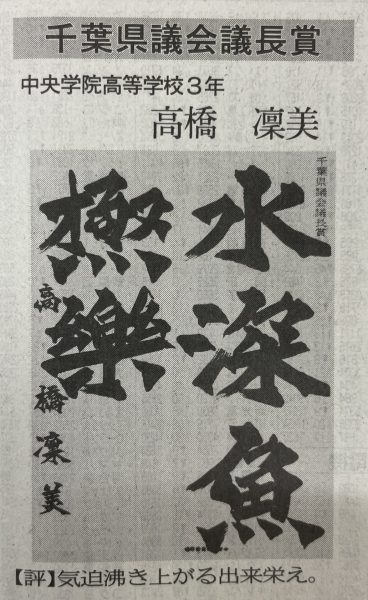 千葉県議会議長賞
中央学院高等学校3年
高橋 凜美
千葉県議会議長賞
水深魚
極樂
高橋凜美
【評】気迫沸き上がる出来栄え。